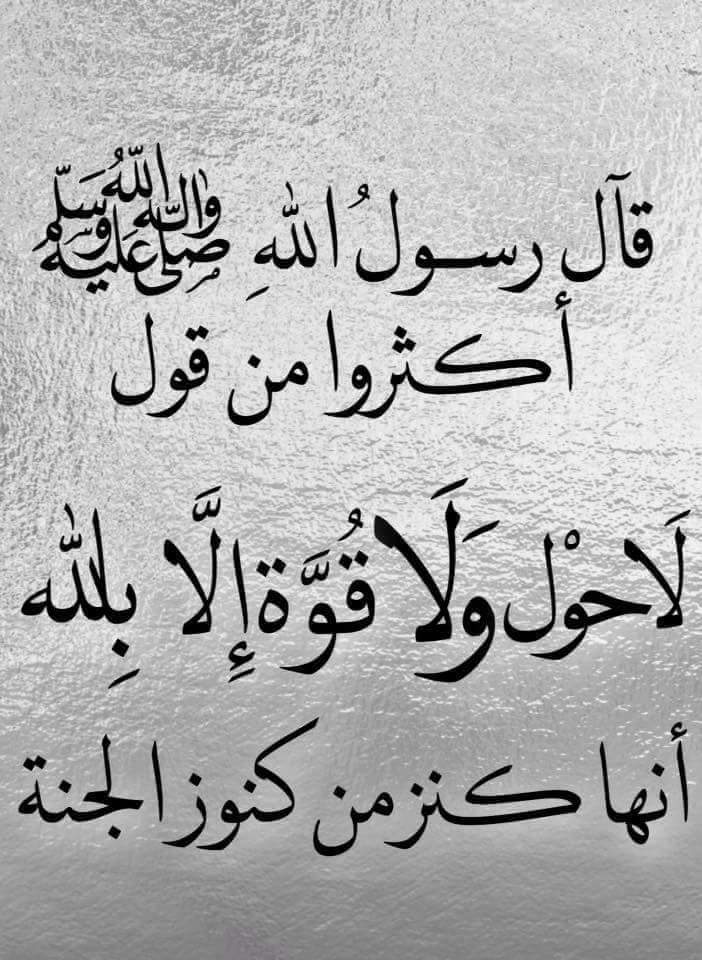 قآل رسـول ُ اللهِ ﷺ
أكثروا من قول
لَا حوْل وَلَا قُوَّة إِلَّا بِالله
أنها كنز من كنوز الجنة